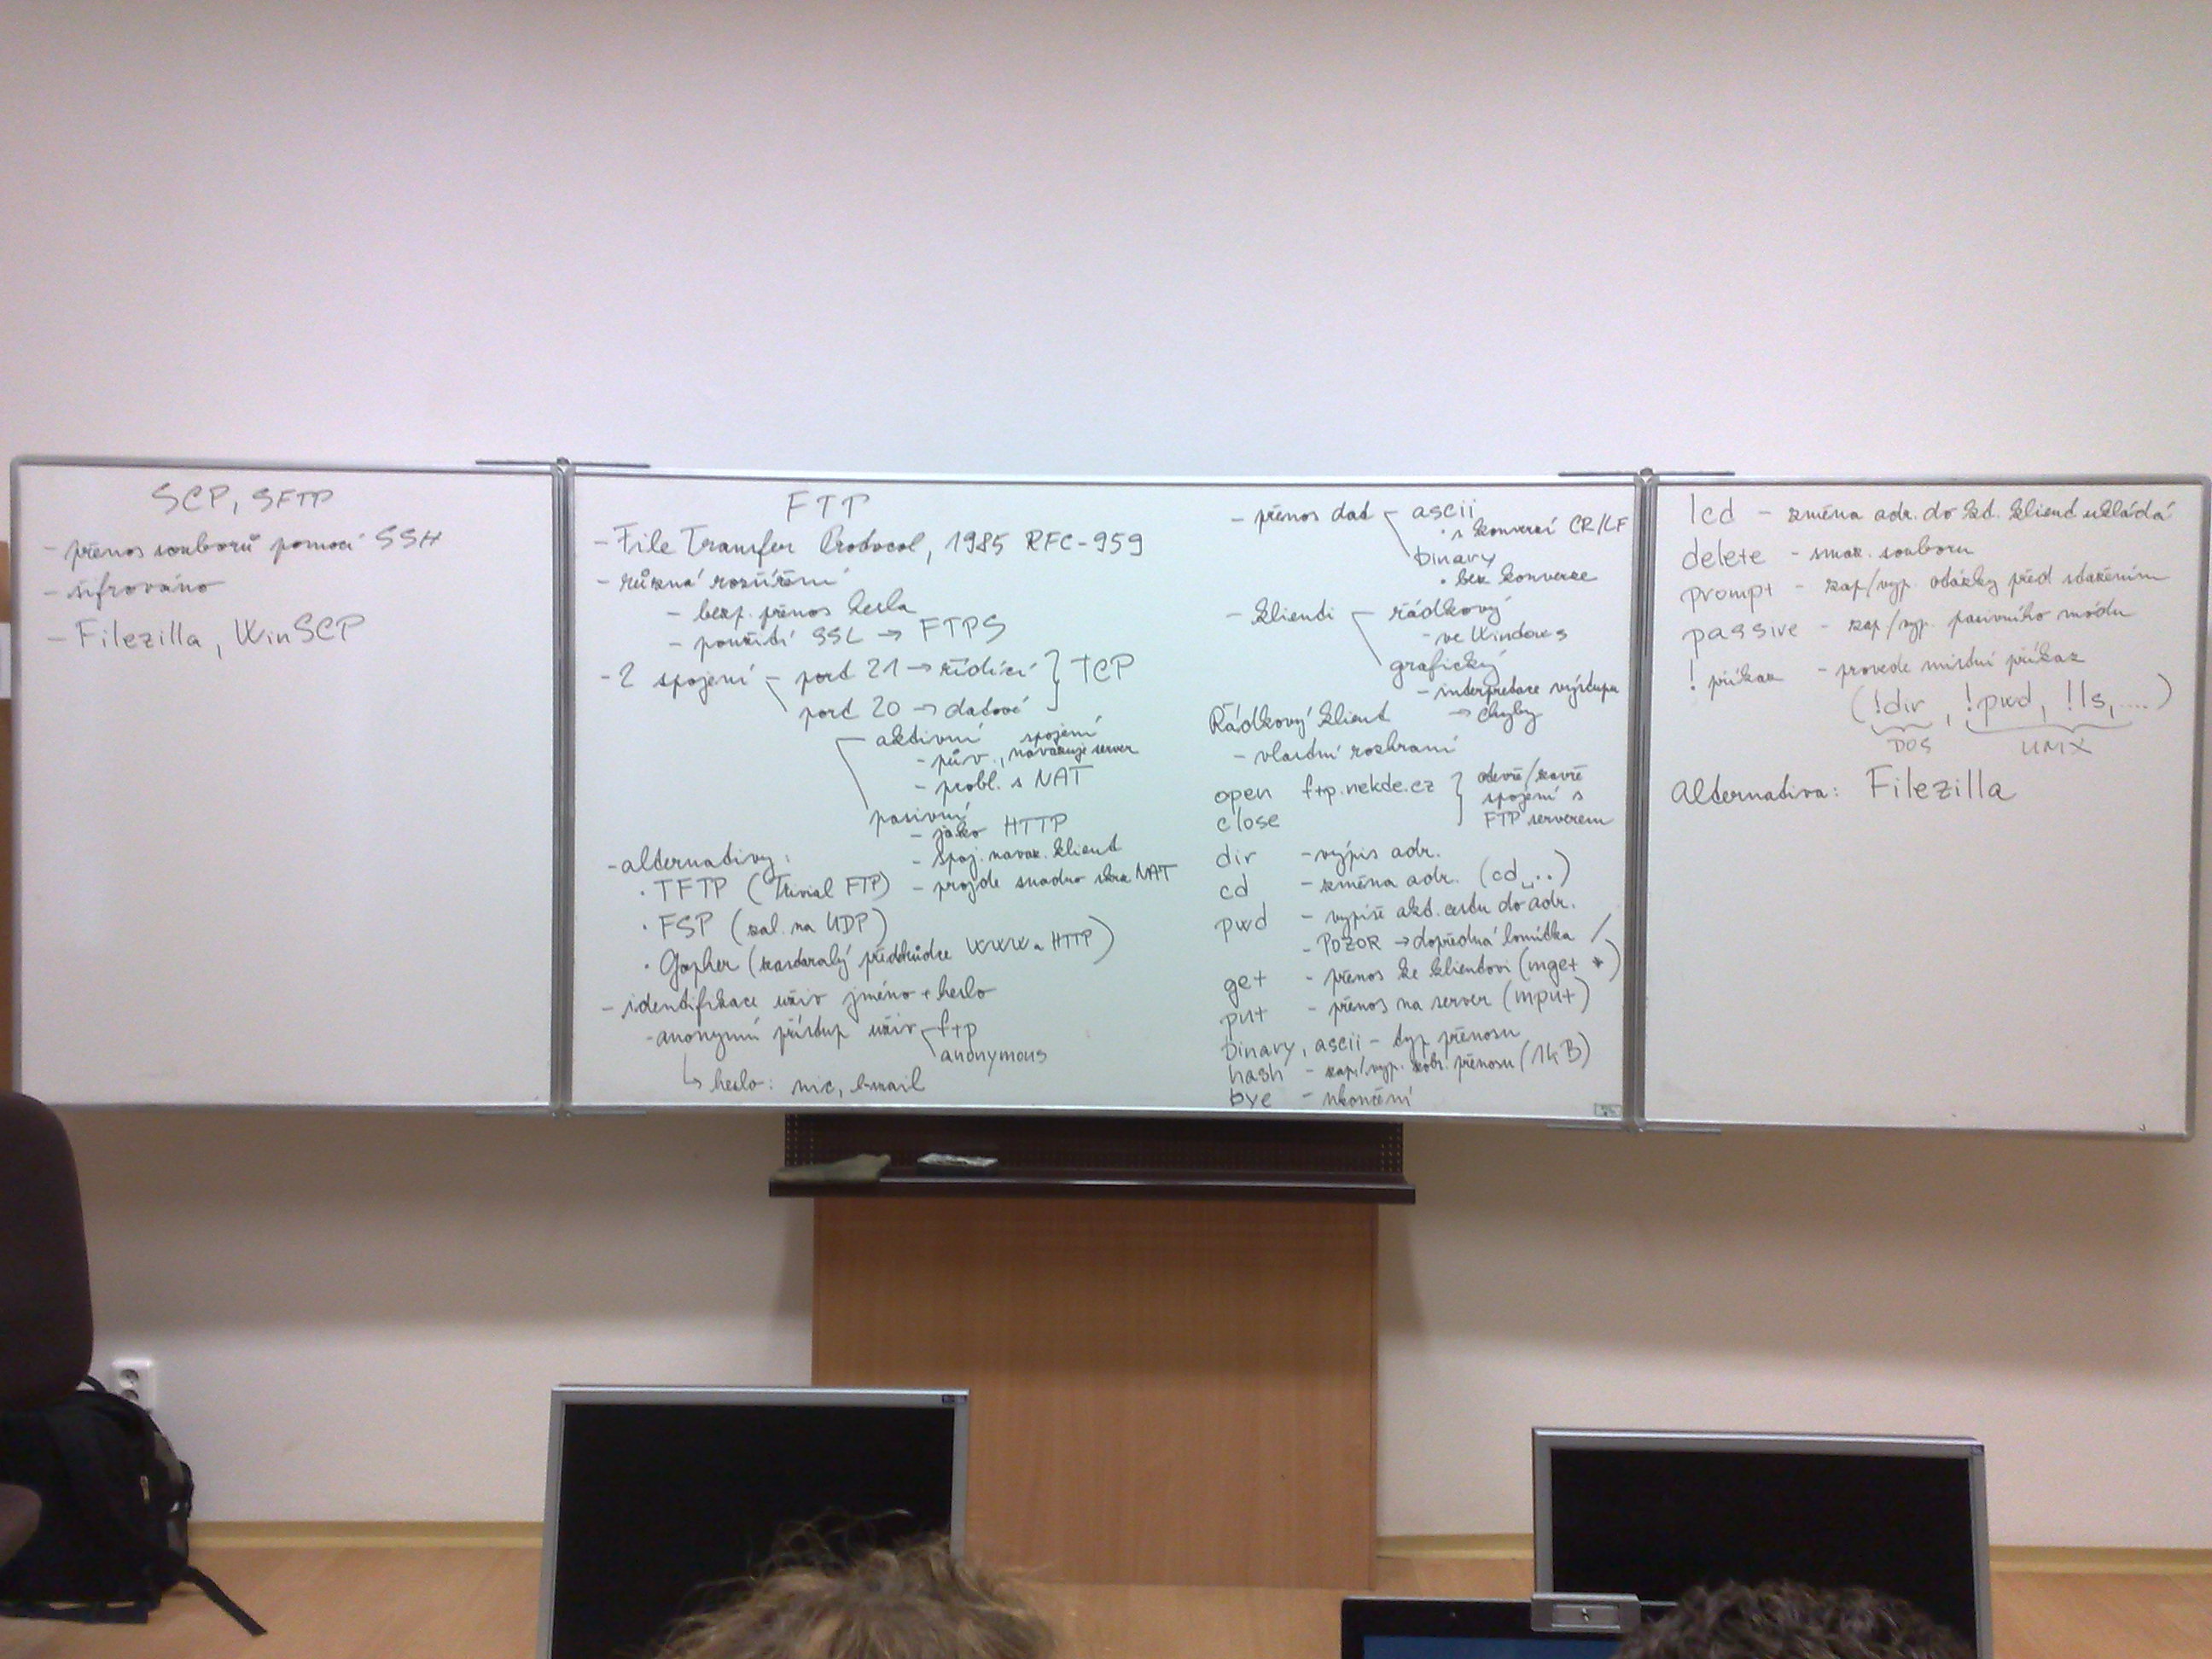 SCP, SFTP
- přenos souborů pomocí SSH
- šifrováno
- Filezilla, WinSCP
FTP
- File Transfer Protocol, 1985 RFC-959
- různá rozšíření
- bezp. přenos hesla
- použití SSL → FTPS
- 2 spojení - port 21 → řídící } TCP
port 20 → datové
aktivní spojení
- pův., navazuje server
- probl. s NAT
pasivní
- jako HTTP
- spoj. navaz. klient
- projde snadno skrz NAT
- alternativy:
• TFTP (Trivial FTP)
• FSP (zal. na UDP)
• Gopher (zastaralý předchůdce WWW a HTTP)
- identifikace uživ jméno + heslo
- anonymní přístup uživ ftp
anonymous
↳ heslo: nic, email
- přenos dat - ascii
• s konverzí CR/LF
binary
• bez konverze
- klienti - řádkový
- ve Windows
grafický
- interpretace výstupu
→ chyby
Řádkový klient
- vlastní rozhraní
open ftp.nekde.cz } otevře/zavře
close spojení s
FTP serverem
dir - výpis adr.
cd - změna adr. (cd␣..)
pwd - vypíše akt. cestu do adr.
- POZOR → dopředná lomítka /
get - přenos ke klientovi (mget *)
put - přenos na server (mput)
binary, ascii - typ přenosu
hash - zap/vyp. zobr. přenosu (1kB)
bye - ukončení
lcd - změna adr. do kt. klient ukládá
delete - smaz. souboru
prompt - zap/vyp. otázky před stažením
passive - zap/vyp. pasivního módu
! příkaz - provede místní příkaz
(!dir, !pwd, !ls, ....)
DOS UNIX
alternativa: Filezilla